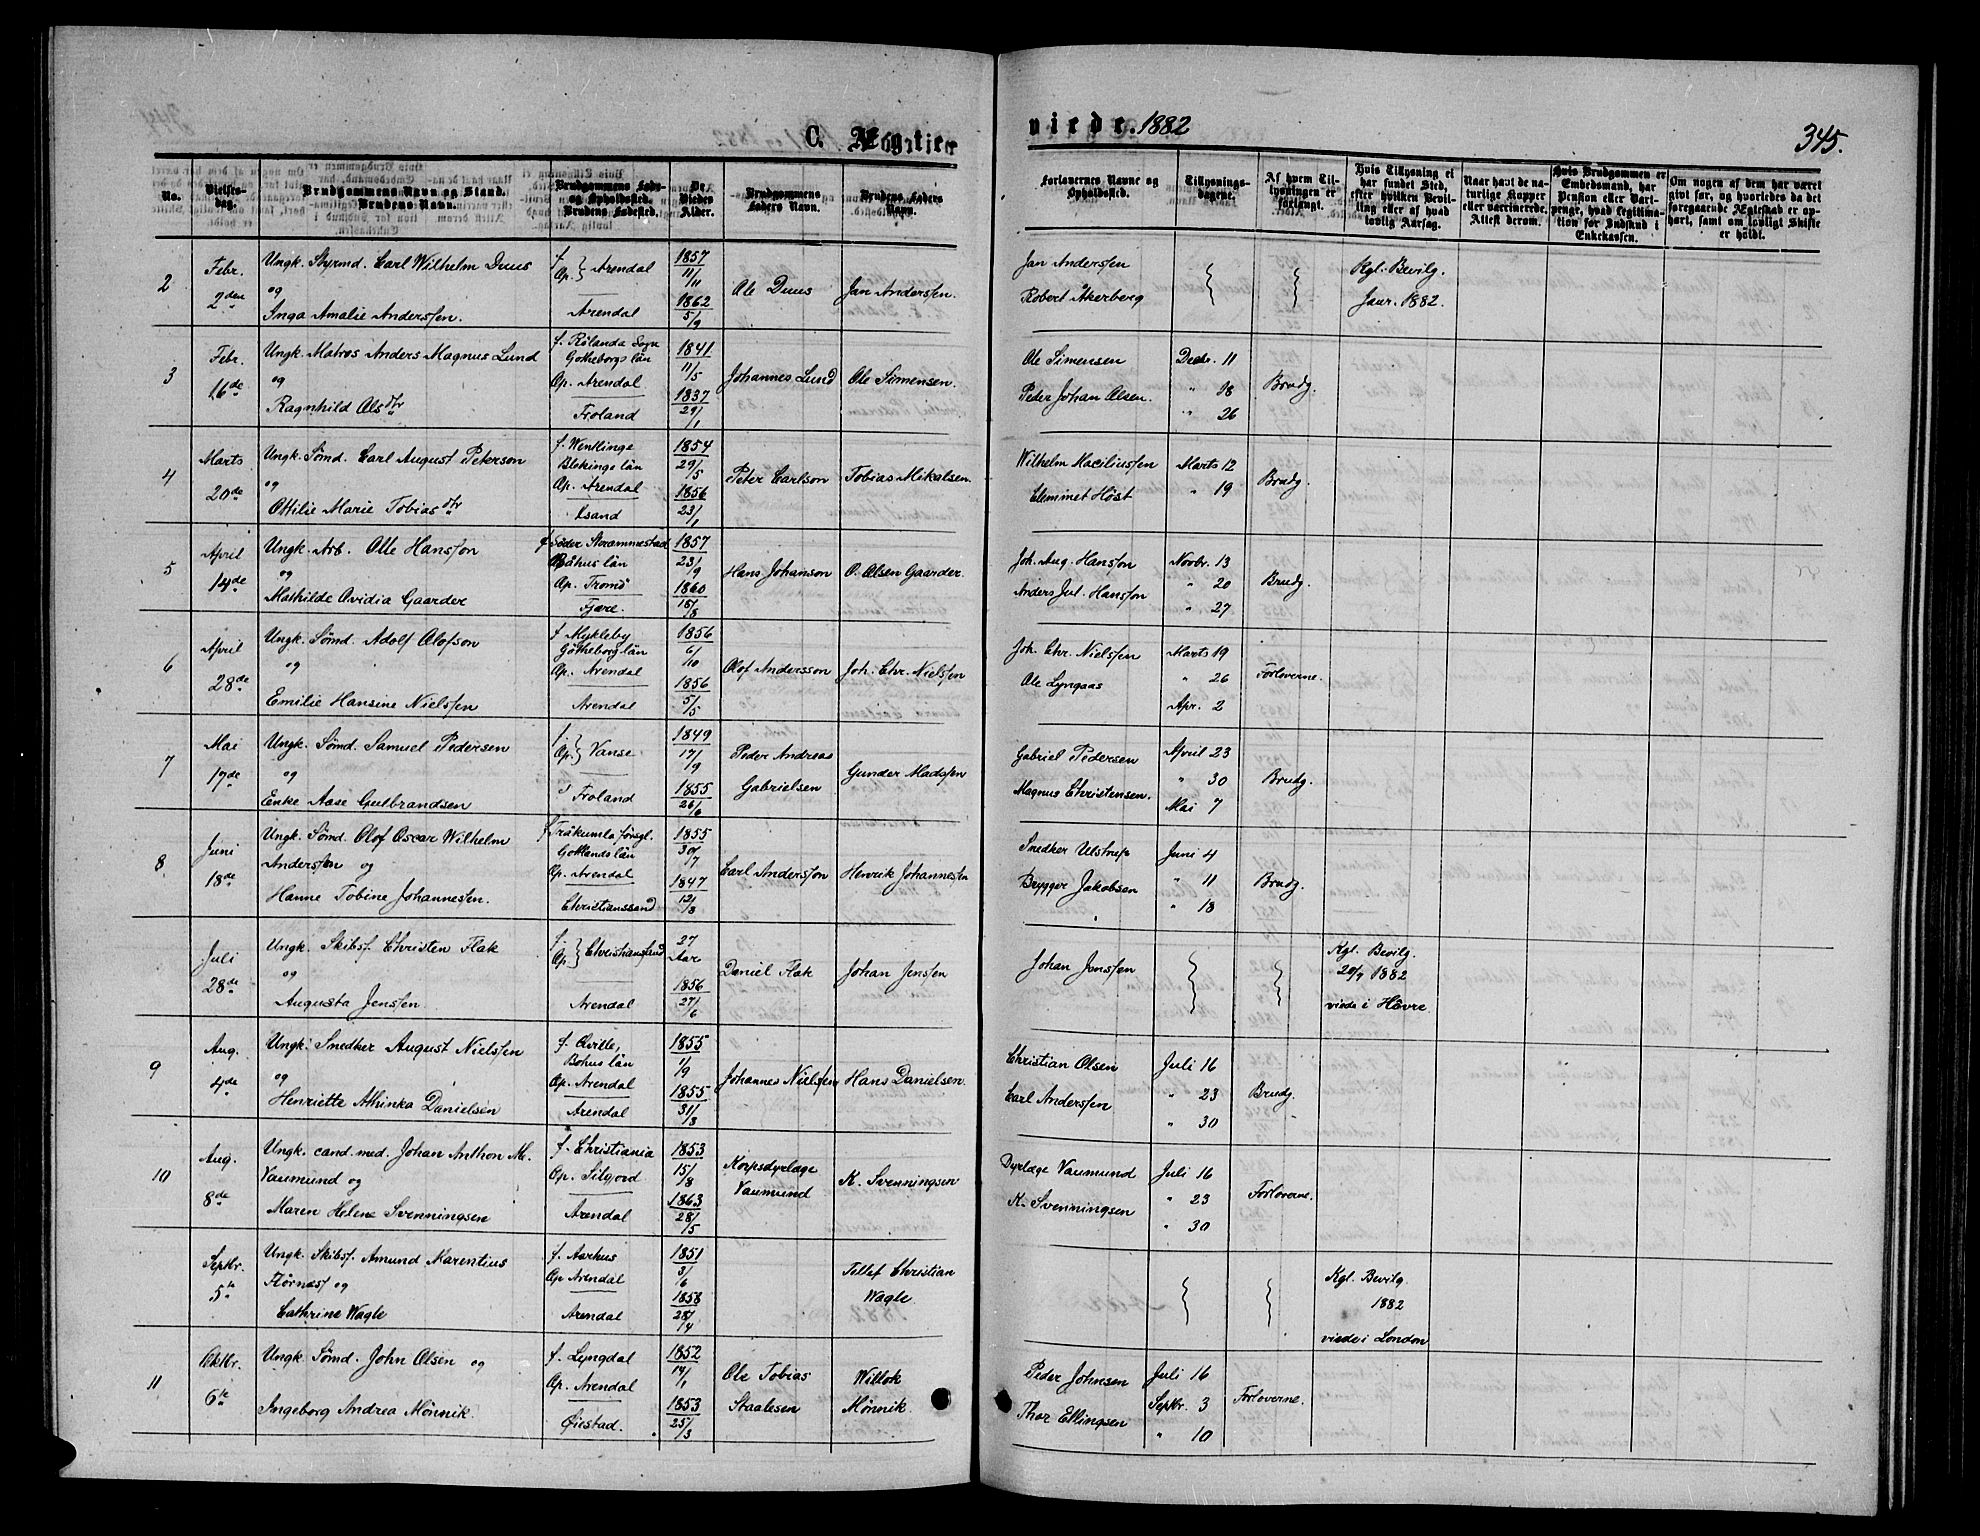 C. Ægtevied e. 1882
345.
No.
Vielses-dag.
Brudgommens Navn og Stand. Brudens Navn.
Brudgommens Føde- og Opholdssted. Brudens Fødested.
De Viedes Alder.
Brudgommens Faders Navn.
Brudens Faders Navn.
Forlovernes Navne og Opholdssted.
Tillysnings-dagene.
Af hvem Tillysningen er forlangt.
Hvis Tillysning ei har fundet Sted, efter hvilken Bevilling eller af hvad lovlig Aarsag.
Naar havt de naturlige Kopper eller vaccinerede. Attest derom.
Hvis Brudgommen er Embedsmand, har Pension eller Vartpenge, hvad Legitimation for Indskud i Enkekassen.
Om nogen af dem har været gift før, og hvorledes da det foregaaende Ægteskab er ophørt, samt om lovligt Skifte er holdt.
2 Febr. 2den
Ungk. Styrmd. Carl Wilhelm Duus
og
Inga Amalie Anderssen.
f. Op. } Arendal
Arendal
1857 11/11
1862 5/9
Ole Duus
Jan Anderssen.
Jan Anderssen
Robert Åkerberg
Kgl. Bevilg.
Janr. 1882.
3 Febr. 16de
Ungk. Matros Anders Magnus Lund
og
Ragnhild Olsdtr
f. Rölanda Sogn
Gotheborgs län
Op. Arendal
Froland
1841 11/5
1837 29/1
Johannes Lund
Ole Simensen.
Ole Simensen
Peder Johan Olsen.
Decbr. 11
" 18
" 26
Brudg.
4 Marts 20de
Ungk. Sömd. Carl August Peterson
og
Ottilie Marie Tobiasdtr
f. Wentlinge
Blekinge län
Op. Arendal
Lsand
1854 29/5
1856 23/1
Peter Carlson
Tobias Mikalsen.
Wilhelm Maciliussen
Clemmet Höst
Marts 12
" 19
Brudg.
5 April 14de
Ungk. Arb. Olle Hansson
og
Mathilde Ovidia Gaarder
f. Söder Strømmestad
Båhus län
Op. Tromö
Fjære.
1857 23/9
1860 18/8
Hans Johanson
O. Olsen Gaarder.
Joh. Aug. Hansson
Anders Jul. Hansson
Novbr. 13
" 20
" 27
Brudg.
6 April 28de
Ungk. Sömd. Adolf Olofson
og
Emilie Hansine Nielssen
f. Mykleby
Gotheborg län
Op. Arendal
Arendal
1856 6/10
1856 5/5
Olof Andersson
Joh. Chr. Nielssen
Joh. Chr. Nielssen
Ole Lyngaas
Marts 19
" 26
Apr. 2
Forloverne.
7 Mai 17de
Ungk. Sömd. Samuel Pedersen
og
Enke Aase Gulbrandsen
f. Op. } Vanse
Froland
1849 17/9
1855 26/6
Peder Andreas
Gabrielsen
Gunder Madssen
Gabriel Pedersen
Magnus Christensen.
April 23
" 30
Mai 7
Brudg.
8 Juni 18de
Ungk. Sömd. Olof Oscar Wilhelm
Anderssen og
Hanne Tobine Johannessen.
f. Träkumla försgl.
Gotlands län
Op. Arendal
Christianssand
1855 30/7
1847 12/8
Carl Andersson
Henrik Johannessen
Snedker Ulstrup
Brygger Jakobsen
Juni 4
" 11
" 18
Brudg.
Juli 28de
Ungk. Skibsf. Christen Flak
og
Augusta Jenssen
f. Op. } Christianssand
Arendal
27 Aar
1856 27/6
Daniel Flak
Johan Jenssen
Johan Jenssen
Kgl. Bevilg.
20/7 1882
viede i Hâvre.
9 Aug. 4de
Ungk. Snedker August Nielssen
og
Henriette Athinka Danielsen
f. Qville,
Bohus län
Op. Arendal
Arendal
1855 1/9
1855 31/3
Johannes Nielssen
Hans Danielsen.
Christian Olsen
Carl Anderssen
Juli 16
" 23
" 30
Brudg.
10 Aug. 8de
Ungk. cand. med. Johan Anthon M.
Vaumund og
Maren Helene Svenningsen
f. Christiania
Op. Silgjord
Arendal
1853 15/8
1863 28/5
Korpsdyrlæge
Vaumund
K. Svenningsen
Dyrlæge Vaumund
K. Svenningsen
Juli 16
" 23
" 30
Forloverne.
Septbr. 5te
Ungk. Skibsf. Amund Marentius
og
Cathrine Wagle
f. Aarhus
Op Arendal
Arendal
1851 3/6
1858
Tellef Christian
Wagle
Kgl. Bevilg.
1882
viede i London
11 Oktbr. 6te
Ungk. Sömd. John Olsen og
Ingeborg Andrea Mönnik.
f. Lyngdal
Op. Arendal
Øiestad.
1852 14/1
1853 25/3
Ole Tobias
Staalesen
Willok
Mönnik.
Peder Johnsen
Thor Ellingsen
Juli 16
Septbr. 3
" 10
Forloverne.